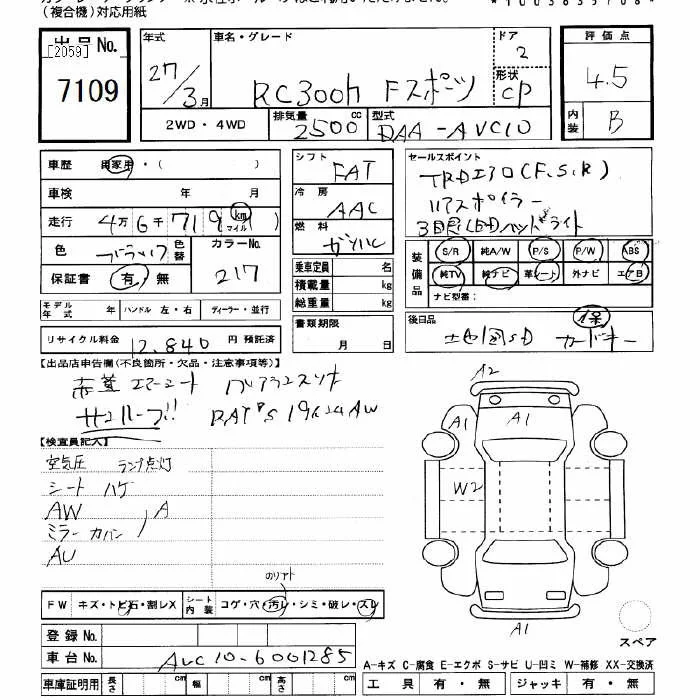 (複合機)対応用紙
出品No.
[2059]
7109
年式
27/3月
車名・グレード
RC300h Fスポーツ
ドア
2
形状
CP
2WD・4WD
排気量
2500cc
型式
DAA-AVC10
評価点
4.5
内装
B
車歴 自家用・( )
車検 年 月
走行 4万6千719(km マイル)
色 ブラック 色替
カラーNo.
217
保証書 有・無
モデル年式 年
ハンドル 左・右
ディーラー・並行
リサイクル料金 12,840円 預託済
シフト
FAT
冷房
AAC
燃料
ガソHL
乗車定員 名
積載量 kg
総重量 kg
書類期限
月 日
セールスポイント
TRDエアロ(F.S.R)
リアスポイラー
3眼LEDヘッドライト
装備品
S/R 純A/W P/S P/W ABS
純TV 純ナビ 革シート 外ナビ エアB
ナビ型番:
後日品
地図SD カードキー
保
【出品店申告欄(不良箇所・欠品・注意事項等)】
赤革 エアーシート
サンルーフ!! RAY'S 19インチAW
【検査員記入】
空気圧 ランプ点灯
シート ハゲ
AW A
ミラーカバー
AU
のりアト
FW キズ・トビ石・割レX
シート内装 コゲ・穴・汚レ・シミ・破レ・スレ
登録No.
車台No. AVC10-6001285
車庫証明用 長さ cm 幅 cm 高さ cm
A2
A1
A1
A1
W2
A1
スペア
A-キズ C-腐食 E-エクボ S-サビ U-凹ミ W-補修 XX-交換済
工具 有・無 ジャッキ 有・無